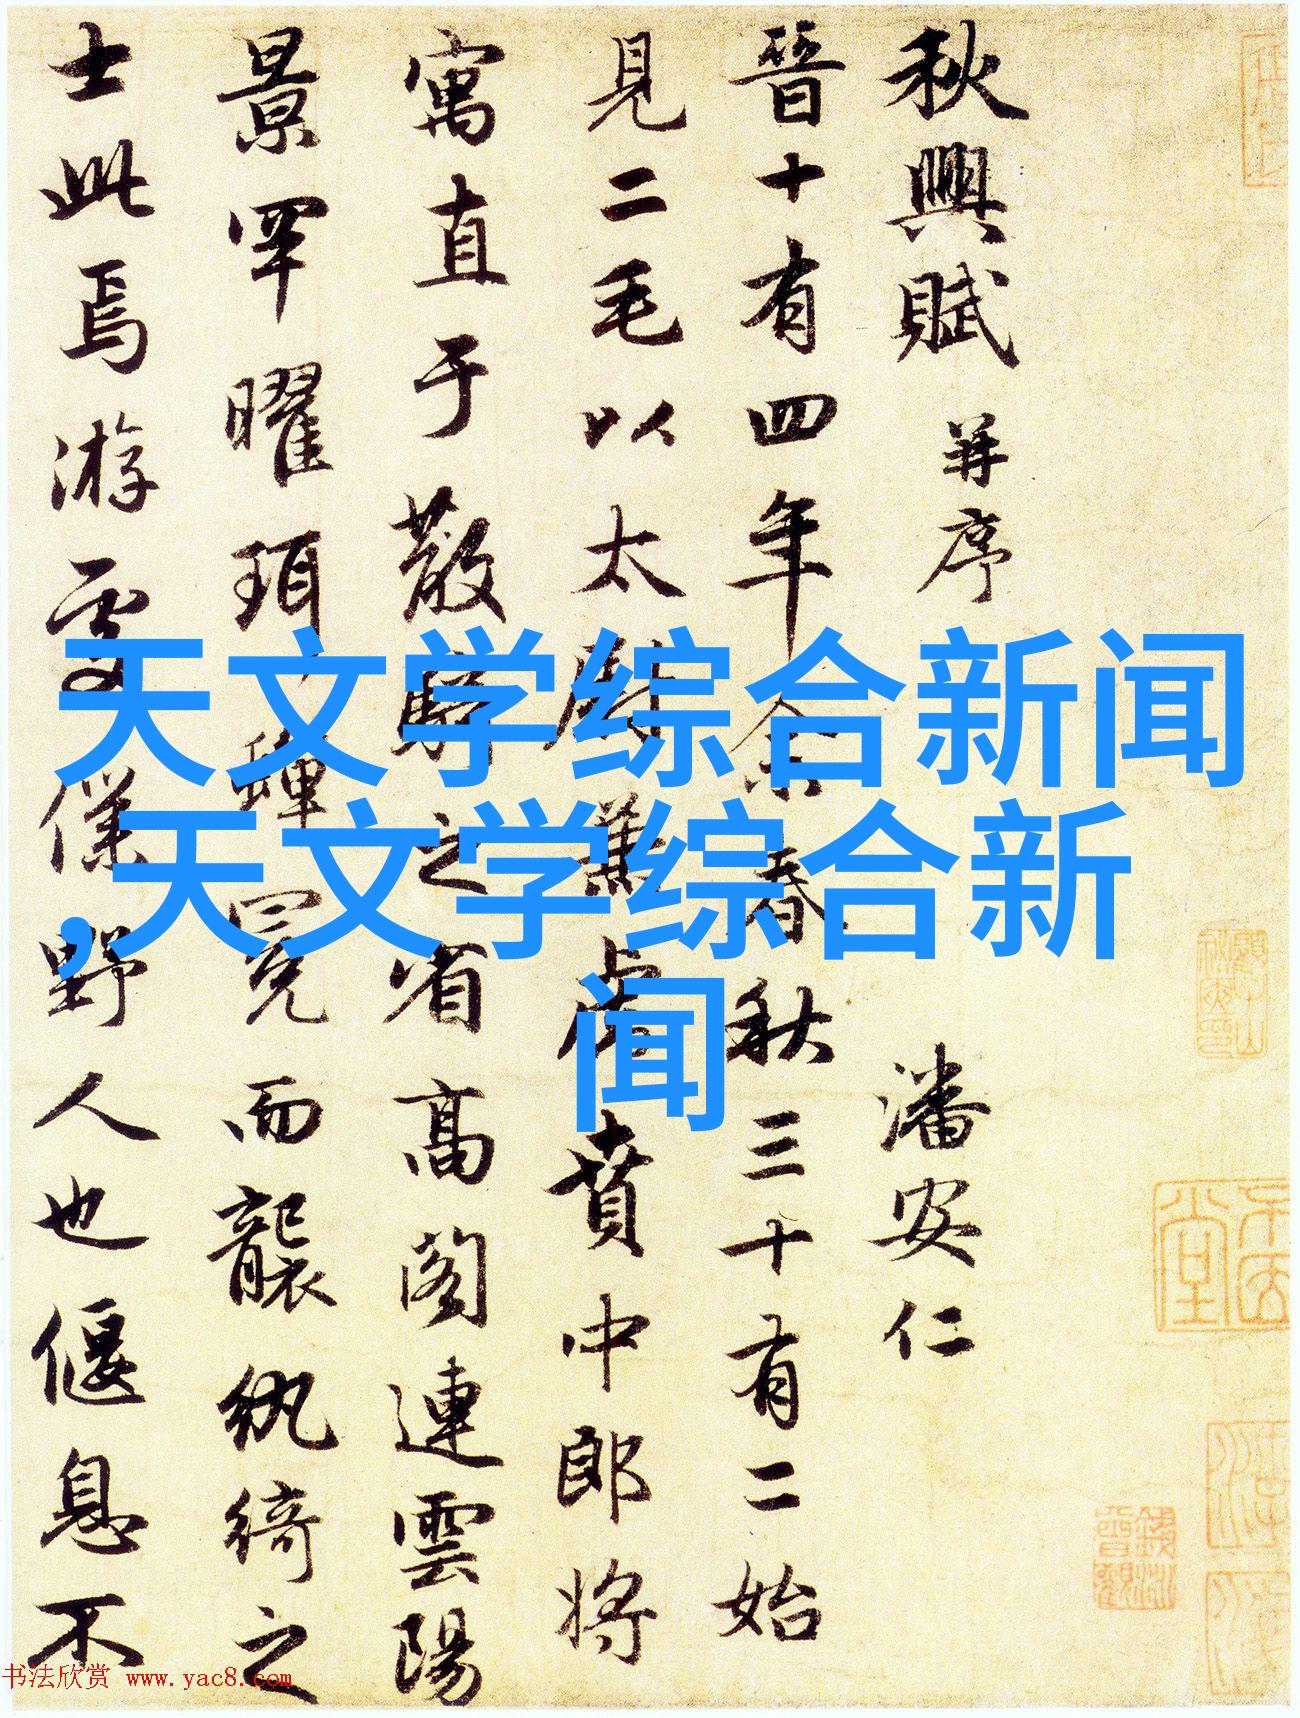 秋興賦 并序 潘安仁
晉十有四年余春秋三十有二始
見二毛以太尉掾兼虎賁中郎将
寓直于散騎之省髙閣連雲陽
景罕曜珥蟬冕而襲紈綺之
士此焉游處僕野人也偃息不
天文学综合新闻
,天文学综合新
闻
书法欣赏 www.yac8.com